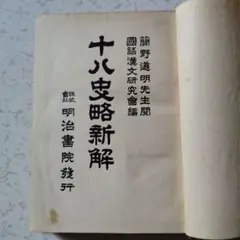 簡野道明先生閲
國語漢文研究會編
十八史略新解
株式會社 明治書院發行